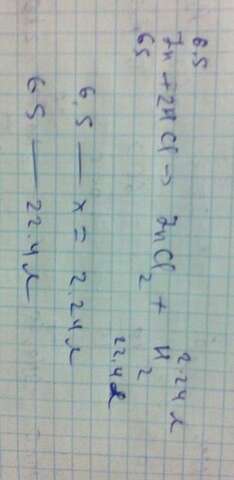 6.5 2.24 л
Zn + 2HCl → ZnCl2 + H2
65 22.4 л
6.5 — x = 2.24 л
65 — 22.4 л